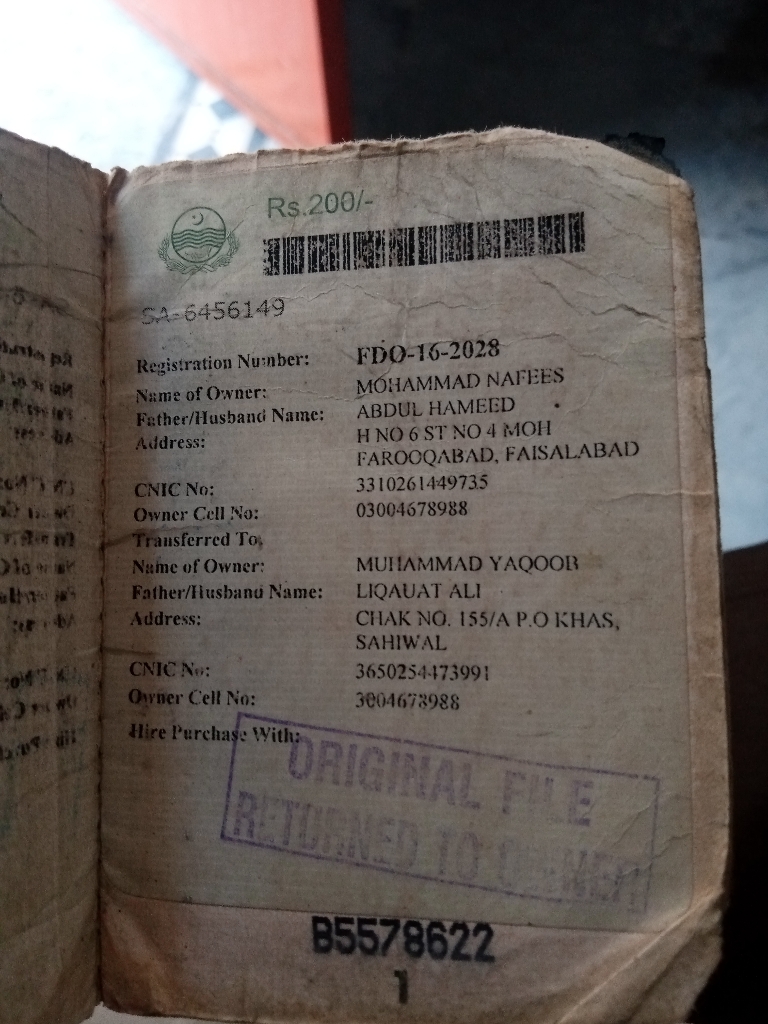 Rs.200/-
SA-6456149
Registration Number: FDO-16-2028
Name of Owner: MOHAMMAD NAFEES
Father/Husband Name: ABDUL HAMEED
Address: H NO 6 ST NO 4 MOH
FAROOQABAD, FAISALABAD
CNIC No: 3310261449735
Owner Cell No: 03004678988
Transferred To,
Name of Owner: MUHAMMAD YAQOOB
Father/Husband Name: LIQAUAT ALI
Address: CHAK NO. 155/A P.O KHAS,
SAHIWAL
CNIC No: 3650254473991
Owner Cell No: 3004678988
Hire Purchase With:
ORIGINAL FILE
RETURNED TO OWNER
B5578622
1